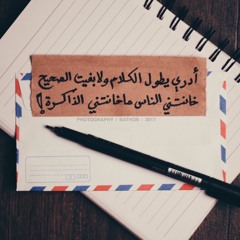 أدري يطول الكلام ولابغيت الصحيح
خانتني الناس ماخانتني الذاكرة !
PHOTOGRAPHY / BATHOR / 2011